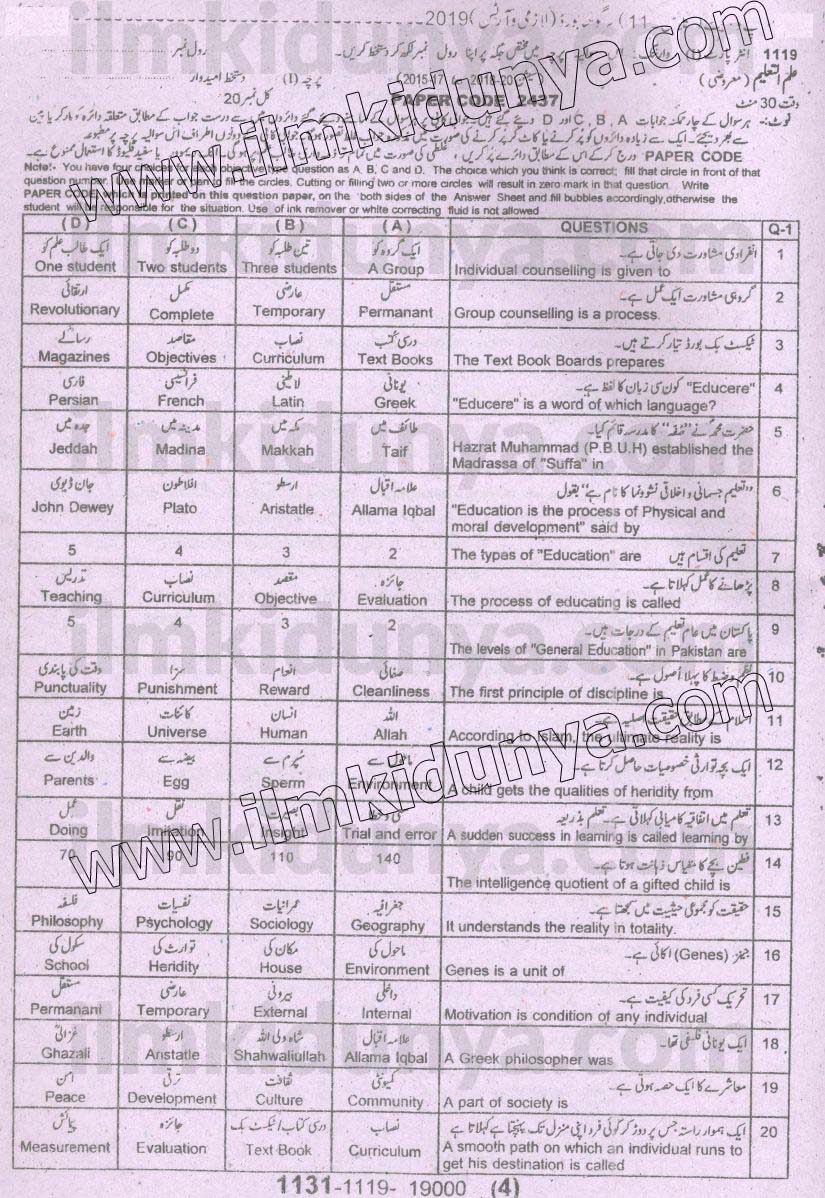 1119
رول نمبر
علم التعلیم (معروضی)
(2015-17
پرچہ (I)
دستخط امیدوار
وقت 30 منٹ
PAPER CODE 2437
کل نمبر 20
Note:- You have four choices for each objective type question as A, B, C and D. The choice which you think is correct; fill that circle in front of that
question number. Use marker or pen to fill the circles. Cutting or filling two or more circles will result in zero mark in that question. Write
PAPER CODE, which is printed on this question paper, on the both sides of the Answer Sheet and fill bubbles accordingly,otherwise the
student will be responsible for the situation. Use of ink remover or white correcting fluid is not allowed
(D) (C) (B) (A) QUESTIONS Q-1
ایک طالب علم کو دو طلبہ کو تین طلبہ کو ایک گروہ کو انفرادی مشاورت دی جاتی ہے۔ 1
One student Two students Three students A Group Individual counselling is given to
ارتقائی مکمل عارضی مستقل گروہی مشاورت ایک عمل ہے۔ 2
Revolutionary Complete Temporary Permanant Group counselling is a process.
رسالے مقاصد نصاب درسی کتب ٹیکسٹ بک بورڈ تیار کرتے ہیں۔ 3
Magazines Objectives Curriculum Text Books The Text Book Boards prepares
فارسی فرانسیسی لاطینی یونانی "Educere" کون سی زبان کا لفظ ہے۔ 4
Persian French Latin Greek "Educere" is a word of which language?
جدہ میں مدینہ میں مکہ میں طائف میں حضرت محمدؐ نے "صفہ" کا مدرسہ قائم کیا۔ 5
Jeddah Madina Makkah Taif Hazrat Muhammad (P.B.U.H) established the
Madrassa of "Suffa" in
جان ڈیوی افلاطون ارسطو علامہ اقبال "تعلیم جسمانی و اخلاقی نشوونما کا نام ہے" بقول 6
John Dewey Plato Aristatle Allama Iqbal "Education is the process of Physical and
moral development" said by
5 4 3 2 The types of "Education" are تعلیم کی اقسام ہیں 7
تدریس نصاب مقصد جائزہ پڑھانے کا عمل کہلاتا ہے۔ 8
Teaching Curriculum Objective Evaluation The process of educating is called
5 4 3 2 پاکستان میں عام تعلیم کے درجات ہیں۔ 9
The levels of "General Education" in Pakistan are
وقت کی پابندی سزا انعام صفائی نظم و ضبط کا پہلا اصول ہے۔ 10
Punctuality Punishment Reward Cleanliness The first principle of discipline is
زمین کائنات انسان اللہ 11
Earth Universe Human Allah According to Islam, the ultimate reality is
والدین سے بیضہ سے سپرم سے ماحول سے ایک بچہ توارثی خصوصیات حاصل کرتا ہے۔ 12
Parents Egg Sperm Environment A child gets the qualities of heridity from
عمل نقل بصیرت تعلم میں اتفاقیہ کامیابی کہلاتی ہے۔ تعلم بذریعہ 13
Doing Imitation Insight Trial and error A sudden success in learning is called learning by
70 90 110 140 فطین بچے کا مقیاس ذہانت ہوتا ہے۔ 14
The intelligence quotient of a gifted child is
فلسفہ نفسیات عمرانیات جغرافیہ حقیقت کو مجموعی حیثیت میں سمجھتا ہے۔ 15
Philosophy Psychology Sociology Geography It understands the reality in totality.
سکول کی توارث کی مکان کی ماحول کی جینز (Genes) اکائی ہے۔ 16
School Heridity House Environment Genes is a unit of
مستقل عارضی بیرونی داخلی تحریک کسی فرد کی کیفیت ہے۔ 17
Permanant Temporary External Internal Motivation is condition of any individual
غزالیؒ ارسطو شاہ ولی اللہ علامہ اقبال ایک یونانی فلسفی تھا۔ 18
Ghazali Aristatle Shahwaliullah Allama Iqbal A Greek philosopher was
امن ترقی ثقافت کمیونٹی معاشرے کا ایک حصہ ہوتی ہے۔ 19
Peace Development Culture Community A part of society is
پیمائش جائزہ درسی کتاب/ٹیکسٹ بک نصاب ایک ہموار راستہ جس پر دوڑ کر کوئی فرد اپنی منزل تک پہنچتا ہے کہلاتا ہے 20
Measurement Evaluation Text Book Curriculum A smooth path on which an individual runs to
get his destination is called
1131-1119- 19000 (4)
www.ilmkidunya.com
www.ilmkidunya.com
ilmkidunya.com
ilmkidunya.com
ilmkidunya.com
ilmkidunya.com
ilmkidunya.com
ilmkidunya.com